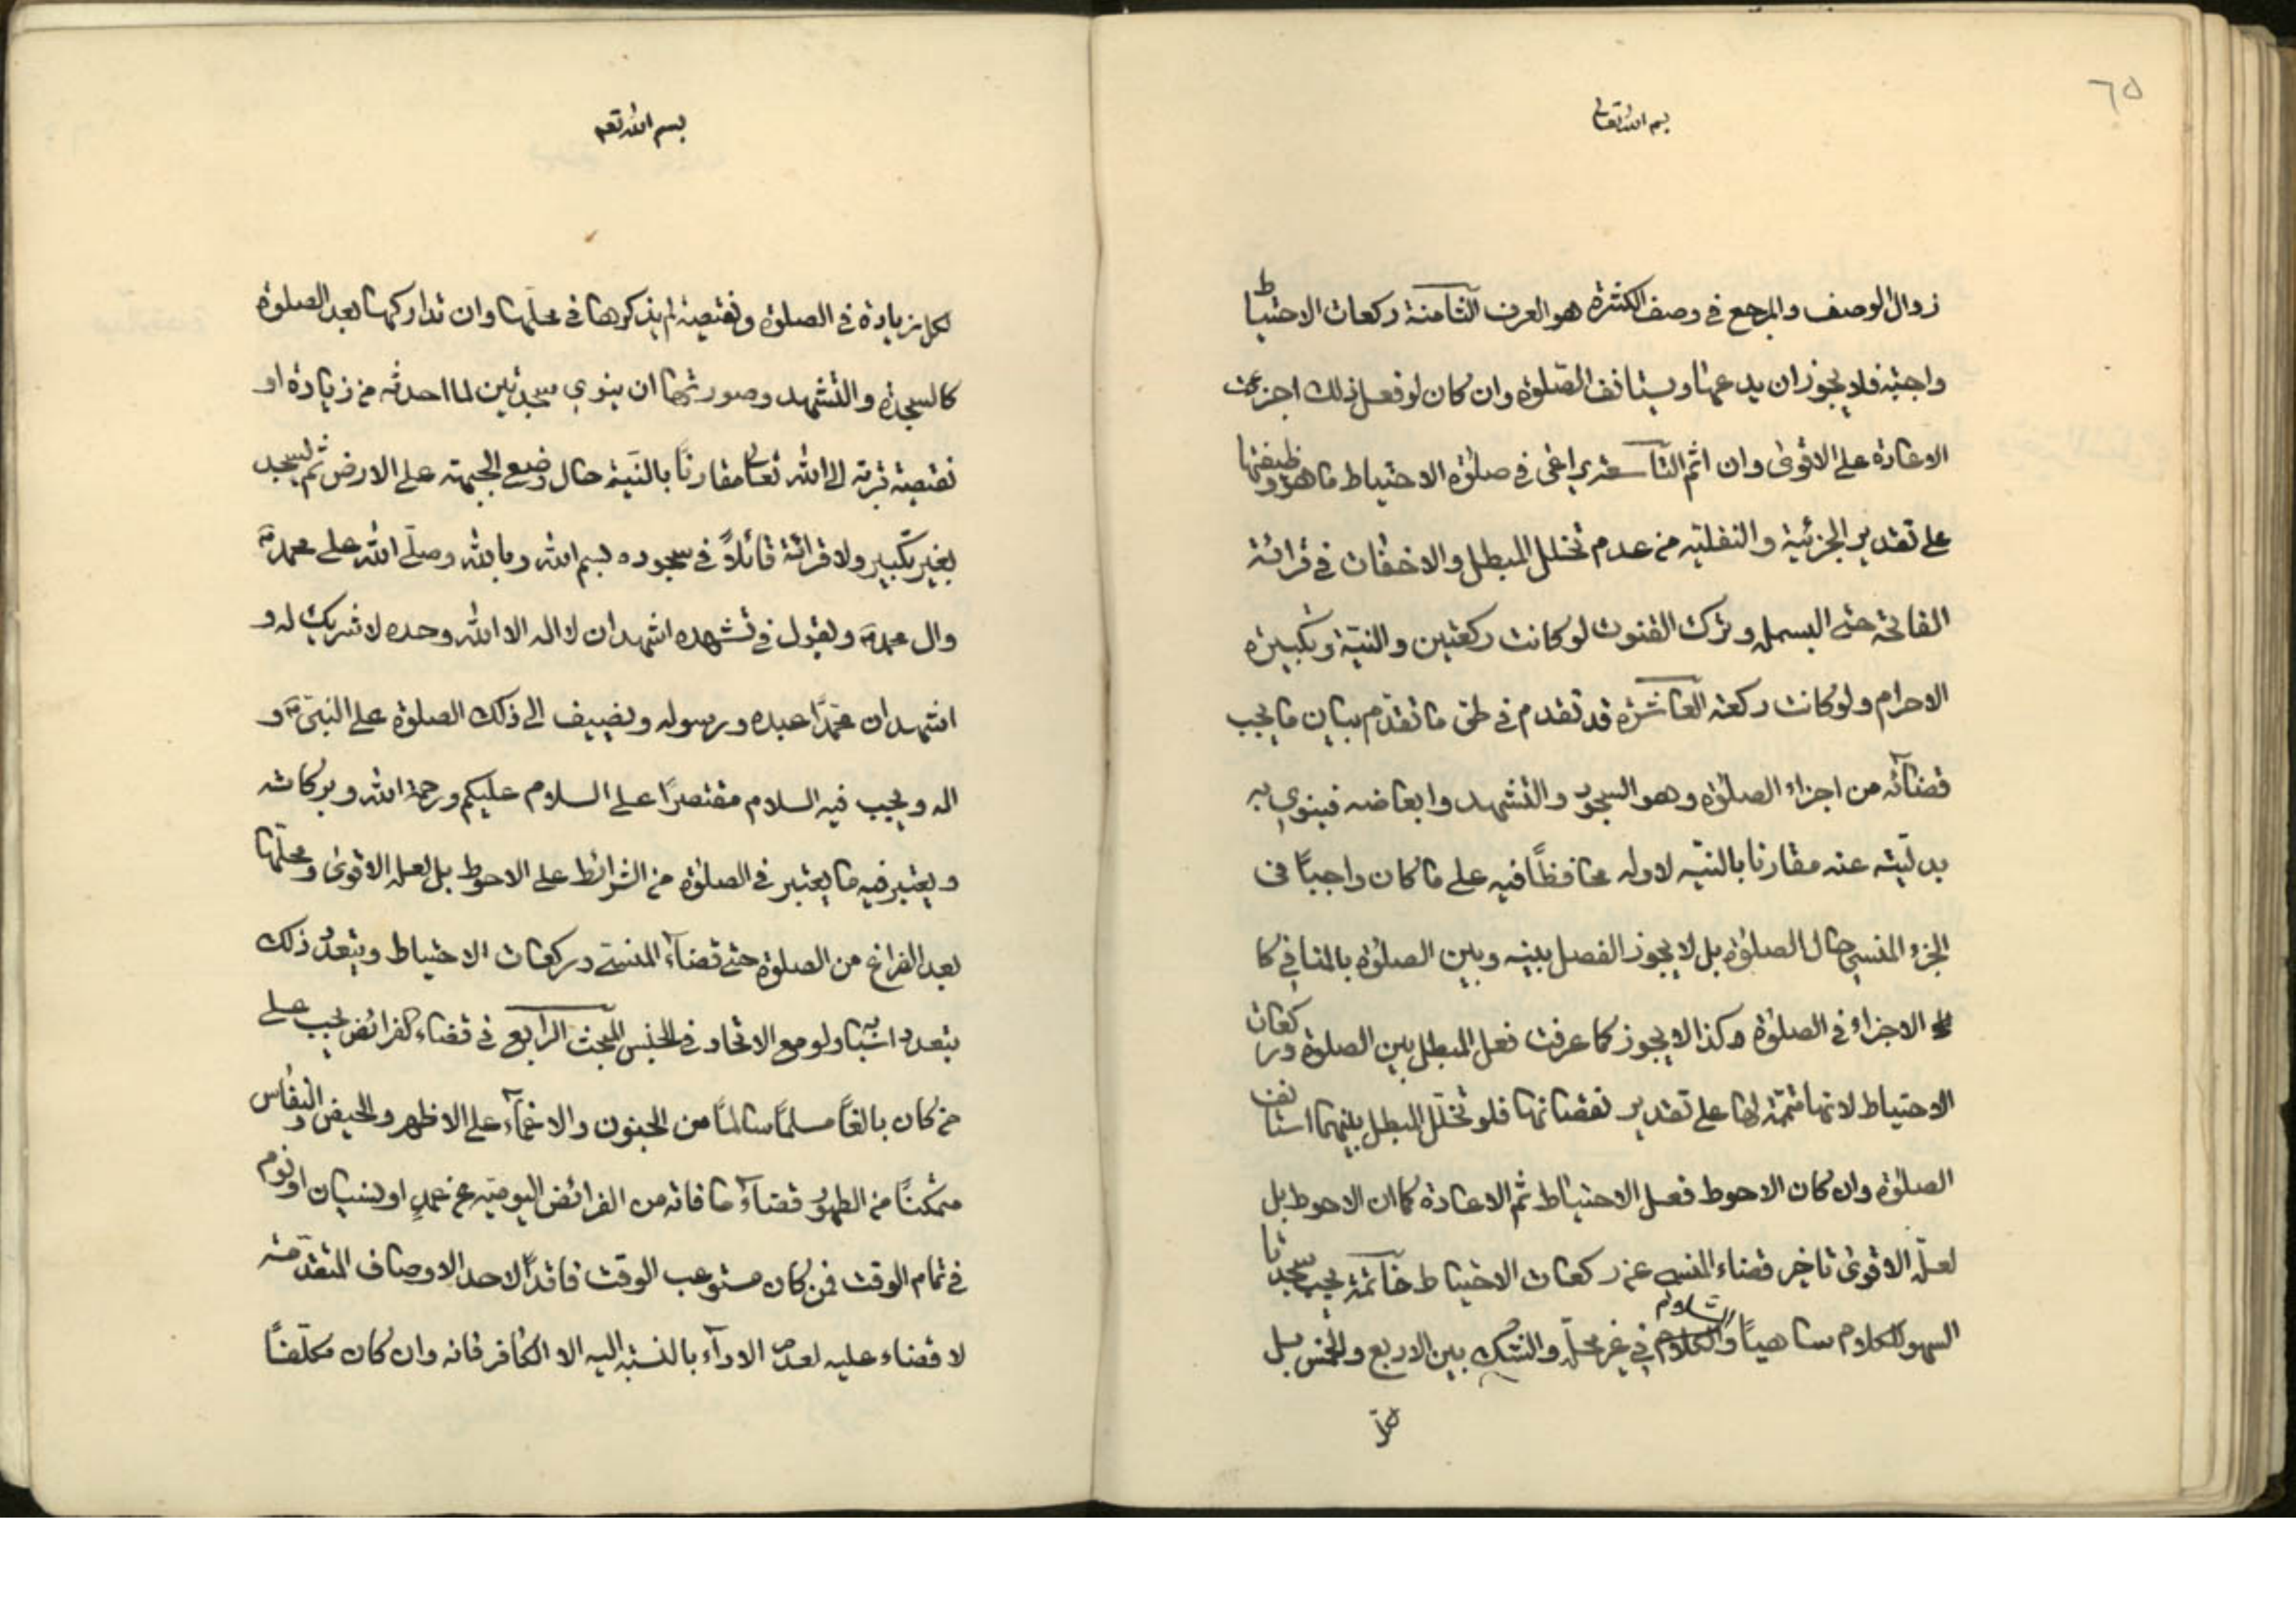 ٦٥
بسم الله تعالى
زوال الوصف والمرجع في وصف الكثرة هو العرف الثامنة ركعات الاحتياط
واجبة فلا يجوز ان يدعها ويستانف الصلوة وان كان لو فعل ذلك اجزئت
الاعادة على الاقوى وان اثم التاسعة يراعى في صلوة الاحتياط ما هو وظيفتها
على تقدير الجزئية والنفلية من عدم تخلل المبطل والاخفات في قرائة
الفاتحة حتى البسملة وترك القنوت لو كانت ركعتين والنية وتكبيرة
الاحرام ولو كانت ركعة العاشرة قد تقدم في طى ما تقدم بيان ما يجب
قضائه من اجزاء الصلوة وهو السجود والتشهد وابعاضه فينوي به
بدليته عنه مقارنا بالنية لاوله محافظًا فيه على ما كان واجبًا في
الجزء المنسي حال الصلوة بل لا يجوز الفصل بينه وبين الصلوة بالمنافي كا
الاجزاء في الصلوة وكذا لا يجوز كما عرفت فعل المبطل بين الصلوة وركعات
الاحتياط لانها متممة لها على تقدير نقصانها فلو تخلّل المبطل بينهما استانف
الصلوة وان كان الاحوط فعل الاحتياط ثم الاعادة كما ان الاحوط بل
لعلّه الاقوى تاخير قضاء المنسي عن ركعات الاحتياط خاتمة يجب سجدتا
السهو للكلام ساهيًا والسلام في غير محلّه والشك بين الاربع والخمس بل
لكل
بسم الله تعم
لكل زيادة في الصلوة ونقيصة لم يذكرها في محلها وان تداركها بعد الصلوة
كالسجدة والتشهد وصورتهما ان ينوي سجدتين لما احدثه من زيادة او
نقيصة قربة الى الله تعالى مقارنًا بالنية حال وضع الجبهة على الارض ثم يسجد
بغير تكبير ولا قرائة قائلاً في سجوده بسم الله وبالله وصلّى الله على محمد
وال محمد ويقول في تشهده اشهد ان لا اله الا الله وحده لا شريك له و
اشهد ان محمّدًا عبده ورسوله ويضيف الى ذلك الصلوة على النبي و
اله ويجب فيه السلام مقتصرًا على السلام عليكم ورحمة الله وبركاته
ويعتبر فيه ما يعتبر في الصلوة من الشرائط على الاحوط بل لعله الاقوى ومحلّها
بعد الفراغ من الصلوة حتى قضاء المنسي وركعات الاحتياط ويتعدد ذلك
بتعدد اسبابه ولو مع الاتحاد في الجنس المبحث الرابع في قضاء الفرائض يجب على
من كان بالغًا مسلمًا سالمًا من الجنون والاغماء على الاظهر والحيض والنفاس
متمكنًا من الطهور قضاء ما فاته من الفرائض اليومية عن عمدٍ او نسيان او نوم
في تمام الوقت فمن كان مستوعب الوقت فاقدًا لاحد الاوصاف المتقدمة
لا قضاء عليه لعدم الاداء بالنسبة اليه الا الكافر فانه وان كان مكلّفًا